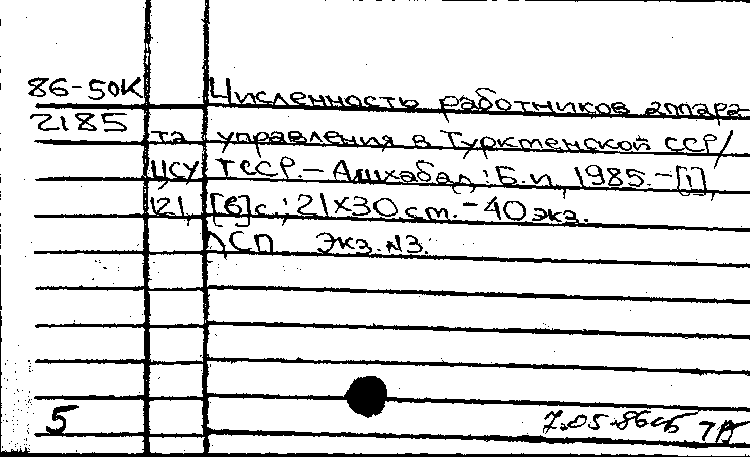 86-50К Численность работников аппара-
2185 та управления в Туркменской ССР/
ЦСУ ТССР.-Ашхабад: Б.и, 1985.-[1],
121, [6]с.; 21х30 см.-40экз.
ДСП Экз. №3.
7.05.86
5